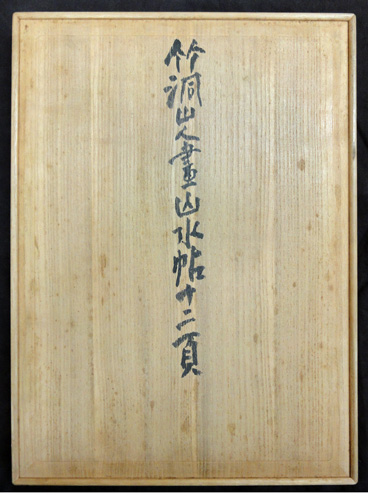 竹洞山人畫山水帖十二頁